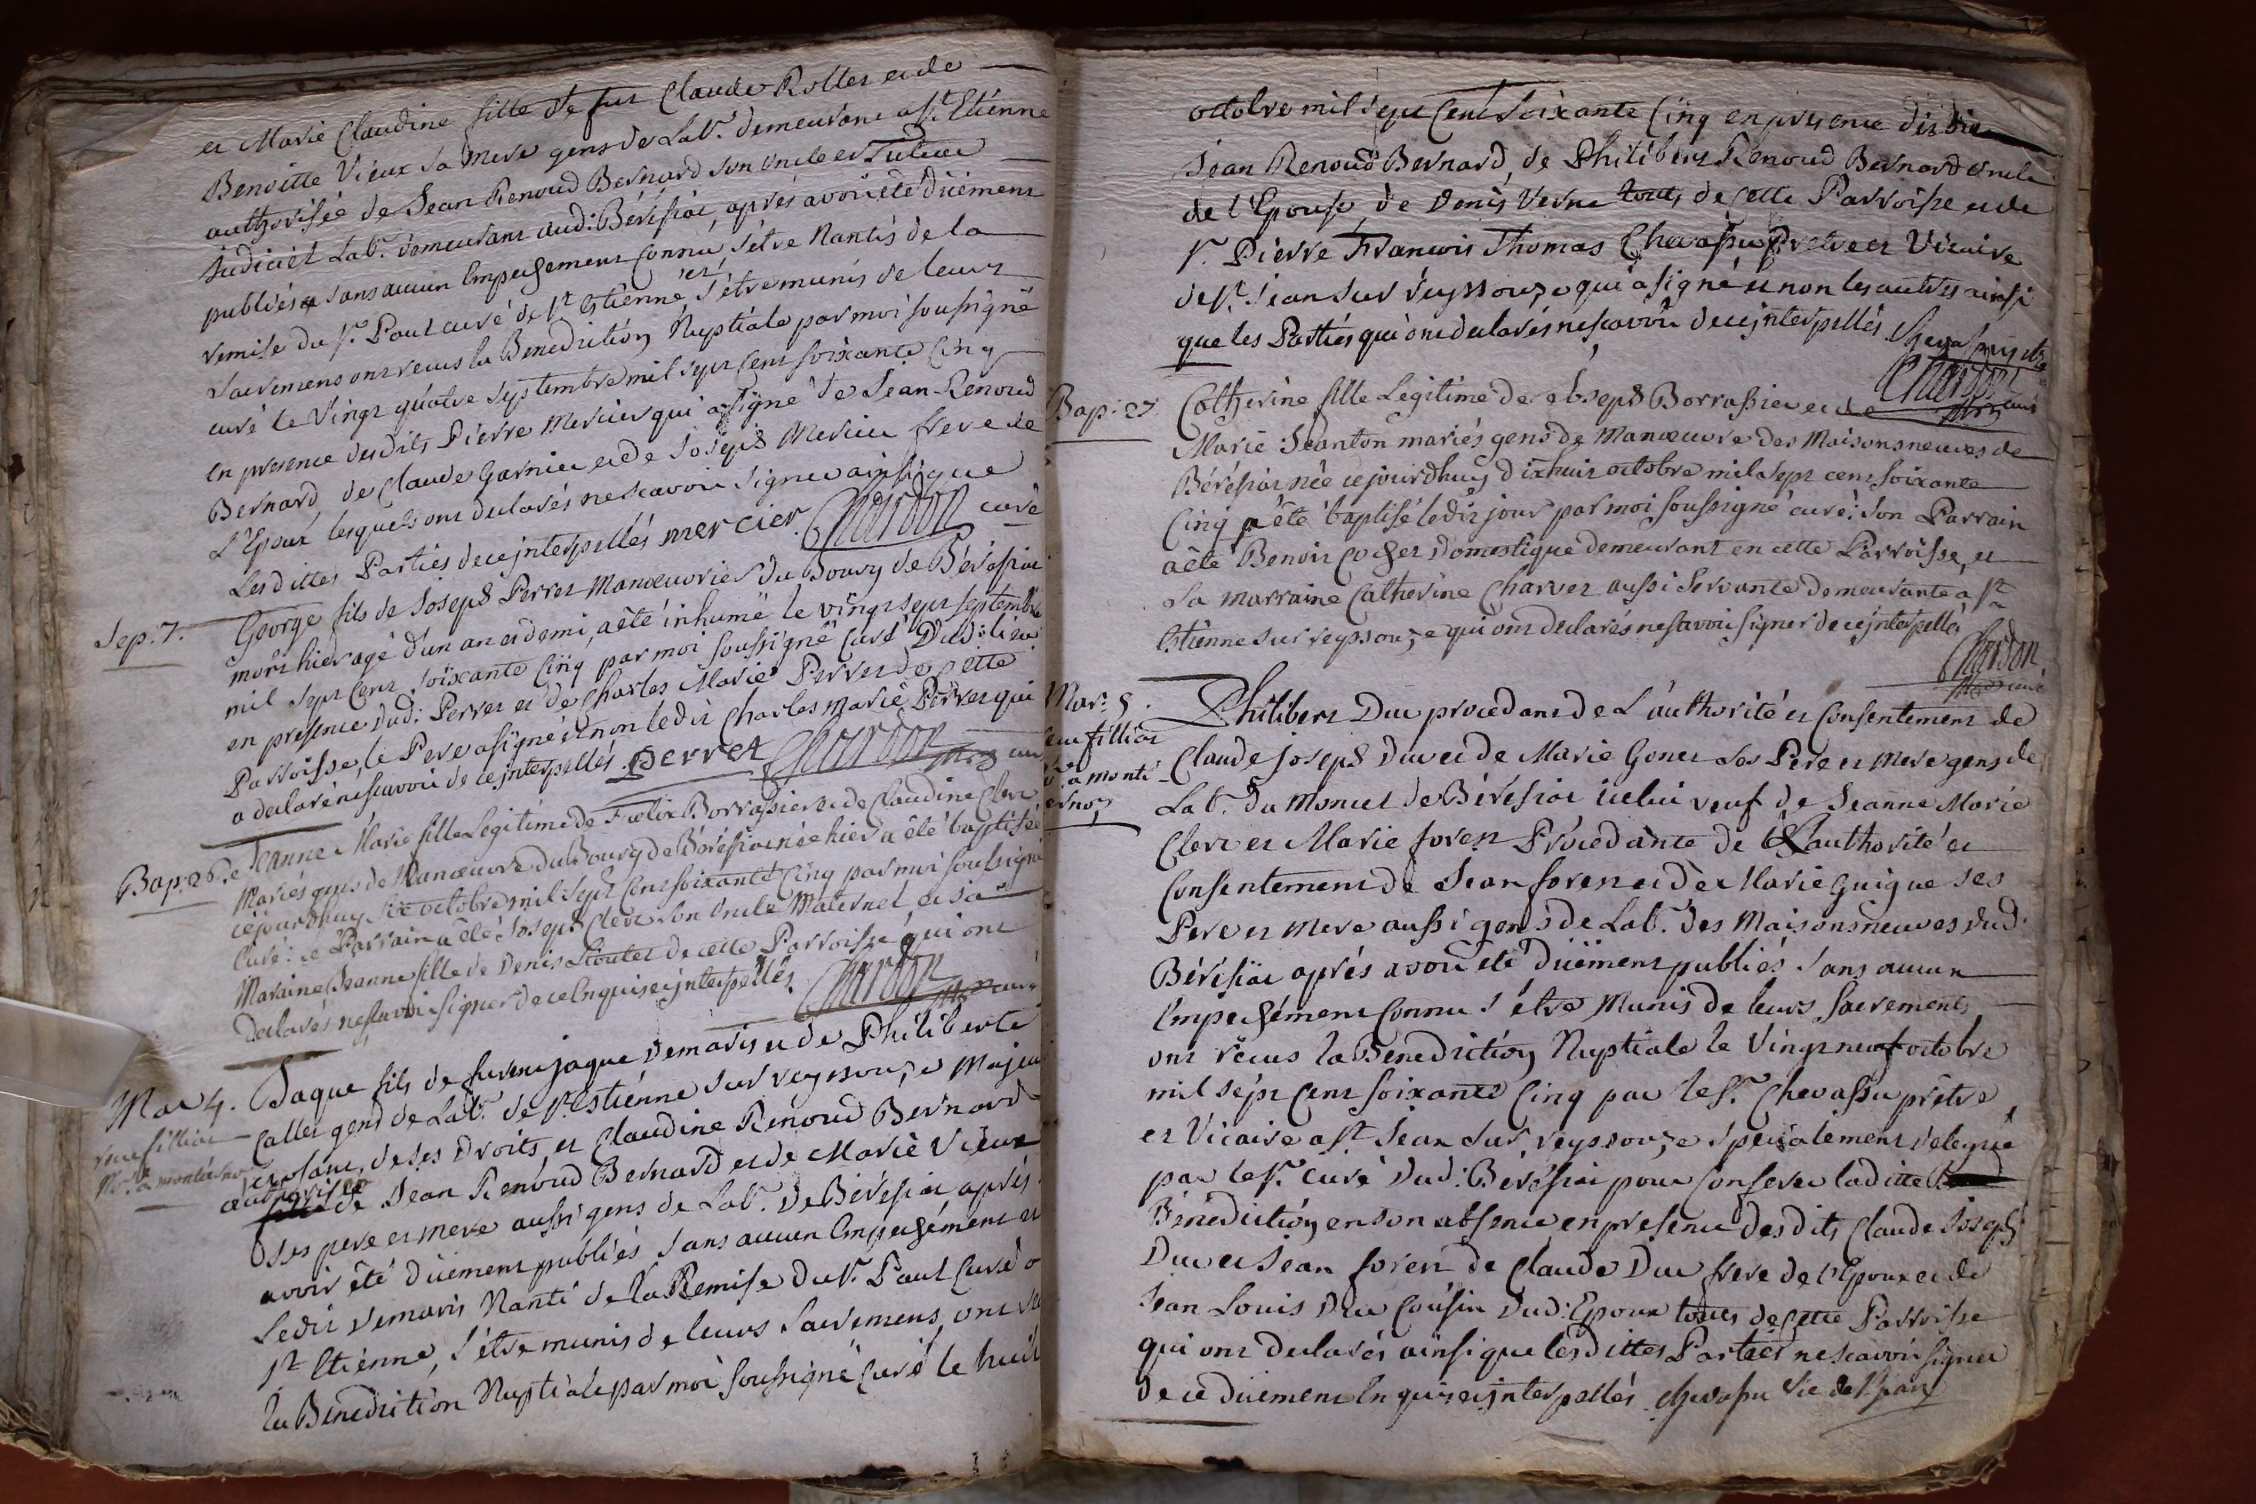 et Marie Claudine fille de fut Claude Rollet et de
Benoitte Vieux sa mere gens de Lab.r demeurant a S.t Etienne
authorisée de Jean Renoud Bernard son oncle et Tuteur
Judiciel Lab.r demeurant aud: Béréfiat, aprés avoir été düement
publiés sans aucun Empechement connu, s'etre Nantis de la
remise du S.r Paul curé de S.t Etienne, et s'etre munis de leurs
Sacremens ont recus la Benediction Nuptiale par moi soussigné
curé le Vingt quatre Septembre mil sept cent soixante cinq
en presence desdits Pierre Mercier qui a signé de Jean Renoud
Bernard, de Claude Garnier et de Joseph Mercier frere de
L'Epoux lesquels ont declarés ne scavoir signer ainsi que
Lesdittes Parties de ce jnterpellés mercier. Chardon curé
Sep. 7. George fils de Joseph Perret Manoeuvrier du Bourg de Béréfiat
mort hier agé d'un an et demi, a été inhumé le vingt sept septembre
mil sept cent soixante cinq par moi soussigné curé Dud: lieu
en presence dud: Perret et de Charles Marie Perret de cette
Parroisse, le Pere a signé et non ledit Charles Marie Perret qui
a declaré ne scavoir de ce jnterpellés. Perret Chardon
Bap: 26. Jeanne Marie fille Legitime de Fœlix Borrassier et de Claudine Clerc
Mariés gens de Manoeuvre du Bourg de Béréfiat née hier a été baptisée
cejourdhuy six octobre mil sept cent soixante cinq par moi soussigné
Curé: le Parrain a été Joseph Clerc son oncle Maternel et sa
Maraine Jeanne fille de Denis de cette Parroisse qui ont
declarés ne scavoir signer de ce Enquis et jnterpellés. Chardon curé
Mar 4. Jaque fils de fut jaque Demaris et de Philiberte
Callet gens de Lab.r de S.t Estienne sur reyssouze Majeur
vne filliat
et Claudine Renoud Bernard
de ses Droits
authorisée de Jean Renoud Bernard et de Marie Vieux
ses pere et mere aussi gens de Lab.r de Béréfiat aprés
avoir été düement publiés sans aucun Empechément et
Ledit Demaris Nanti de la Remise du S.r Paul Curé
S.t Etienne, s'etre munis de leurs Sacremens, ont
la Benediction Nuptiale par moi soussigné Curé le huit
octobre mil sept cent soixante Cinq en presence dudit
Jean Renoud Bernard, de Philibert Renoud Bernard oncle
de l'Epouse, de Denis Verne tous de cette Parroisse et de
S.r Pierre Francois Thomas Chevassu Pretre et Vicaire
de S.t Jean sur reyssouze qui a signé et non les autres ainsi
que les Parties qui ont declarés ne scavoir de ce jnterpellés Chevassu
Chardon curé
Bap: 27. Catherine fille Legitime de Joseph Borrassier et de
Marie Jeanton mariés gens de Manoeuvre des Maisonsneuves de
Béréfiat née cejourdhuy dixhuit octobre mil sept cent soixante
Cinq a été baptisé ledit jour par moi soussigné curé: son Parrain
a été Benoit Cochet Domestique demeurant en cette Parroisse, et
sa marraine Catherine Charvet aussi servante demeurante a S.t
Estienne sur reyssouze qui ont declarés ne scavoir signer de ce jnterpellés
Chardon
curé
Mar: 5. Philibert Duc procedant de L'authorité et Consentement de
Claude joseph Duc et de Marie Gonet ses Pere et Mere gens de
Lab.r du Moncet de Béréfiat icelui veuf de Jeanne Marie
Clerc et Marie forest Procedante de L'authorité et
Consentement de Jean forest et de Marie Guigue ses
Pere et Mere aussi gens de Lab.r des Maisonsneuves dud:
Béréfiat aprés avoir été düement publiés sans aucun
Empechément connu s'étre Munis de leurs Sacrements
ont récus la Benediction Nuptiale le Vingt neuf octobre
mil sept cent soixante Cinq par le S.r Chevassu prêtre
et Vicaire a S.t Jean sur reyssouze spécialement delegué
par le S.r Curé dud: Béréfiat pour conferer laditte
Bénédiction en son absence en presence desdits Claude Joseph
Duc et Jean forest de Claude Duc frere de l'Epoux et de
Jean Louis Duc Cousin dud: Epoux tous de cette Parroisse
qui ont declarés ainsi que lesdittes Parties ne scavoir signer
de ce düement Enquis et jnterpellés. chevassu vic de S.t jean